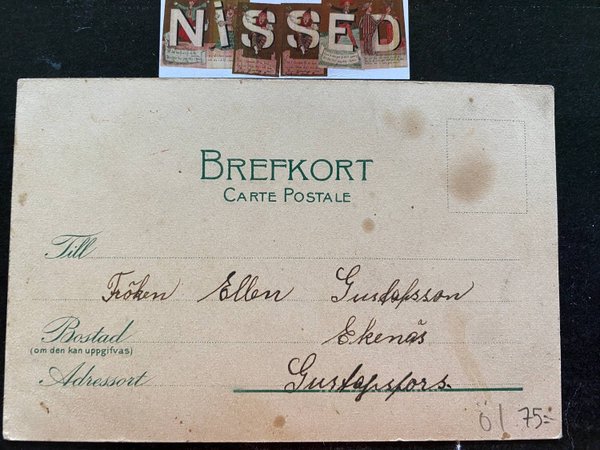 NISSED
BREFKORT
CARTE POSTALE
Till
Fröken Ellen Gustafsson
Bostad Ekenäs
(om den kan uppgifvas)
Adressort Gustafsfors.
Ö/ 75:-